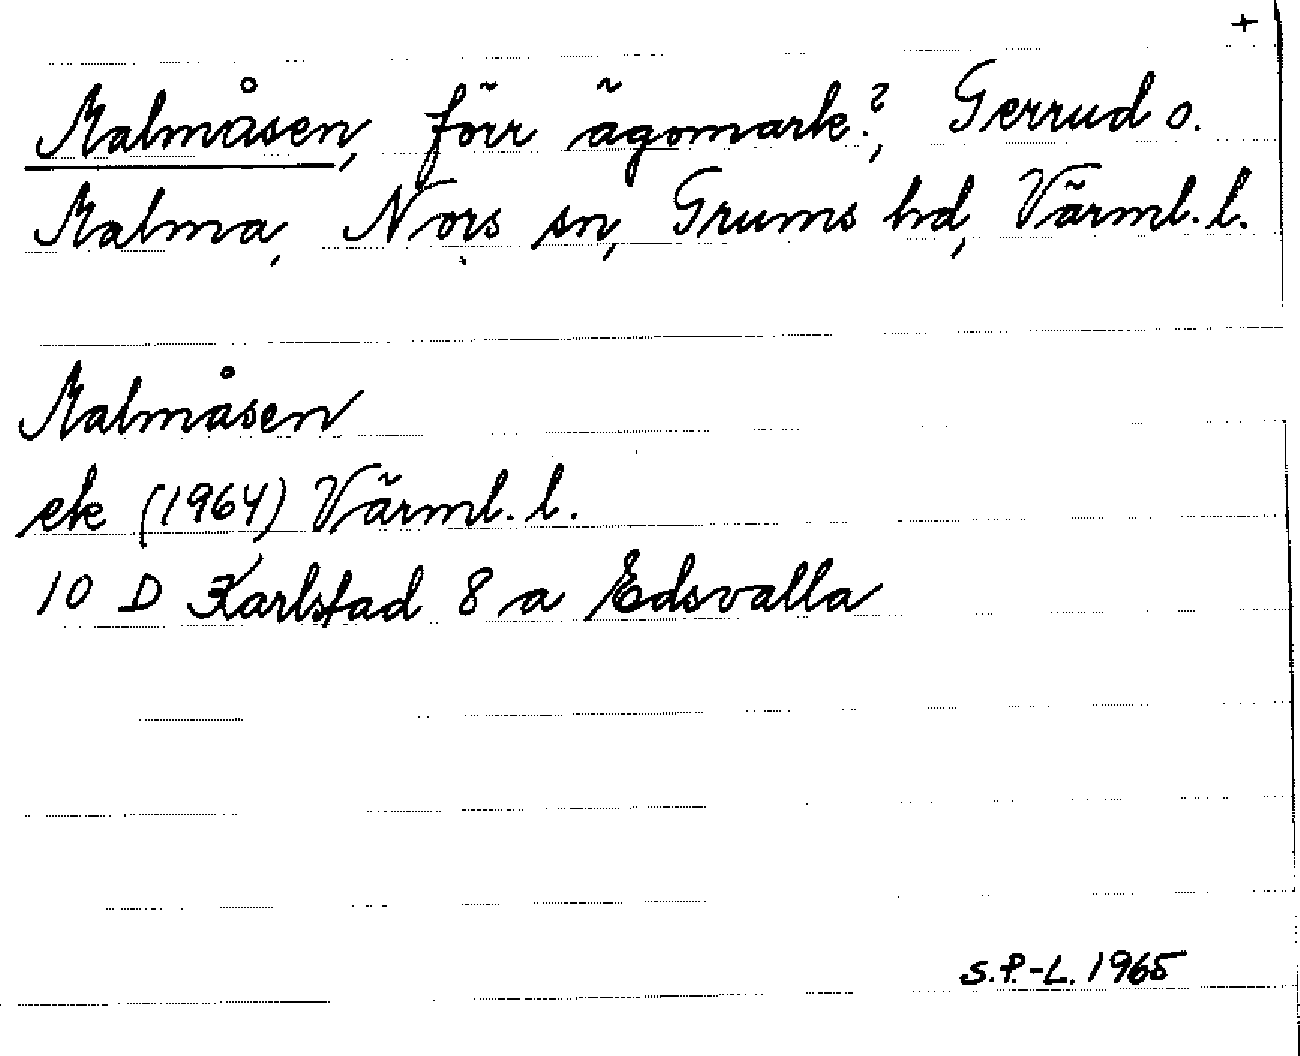 +
Malmåsen, förr ägomark?, Gerrud o.
Malma, Nors sn, Grums hd, Värml. l.
Malmåsen
ek (1964) Värml. l.
10 D Karlstad 8 a Edsvalla
S.P.-L. 1965